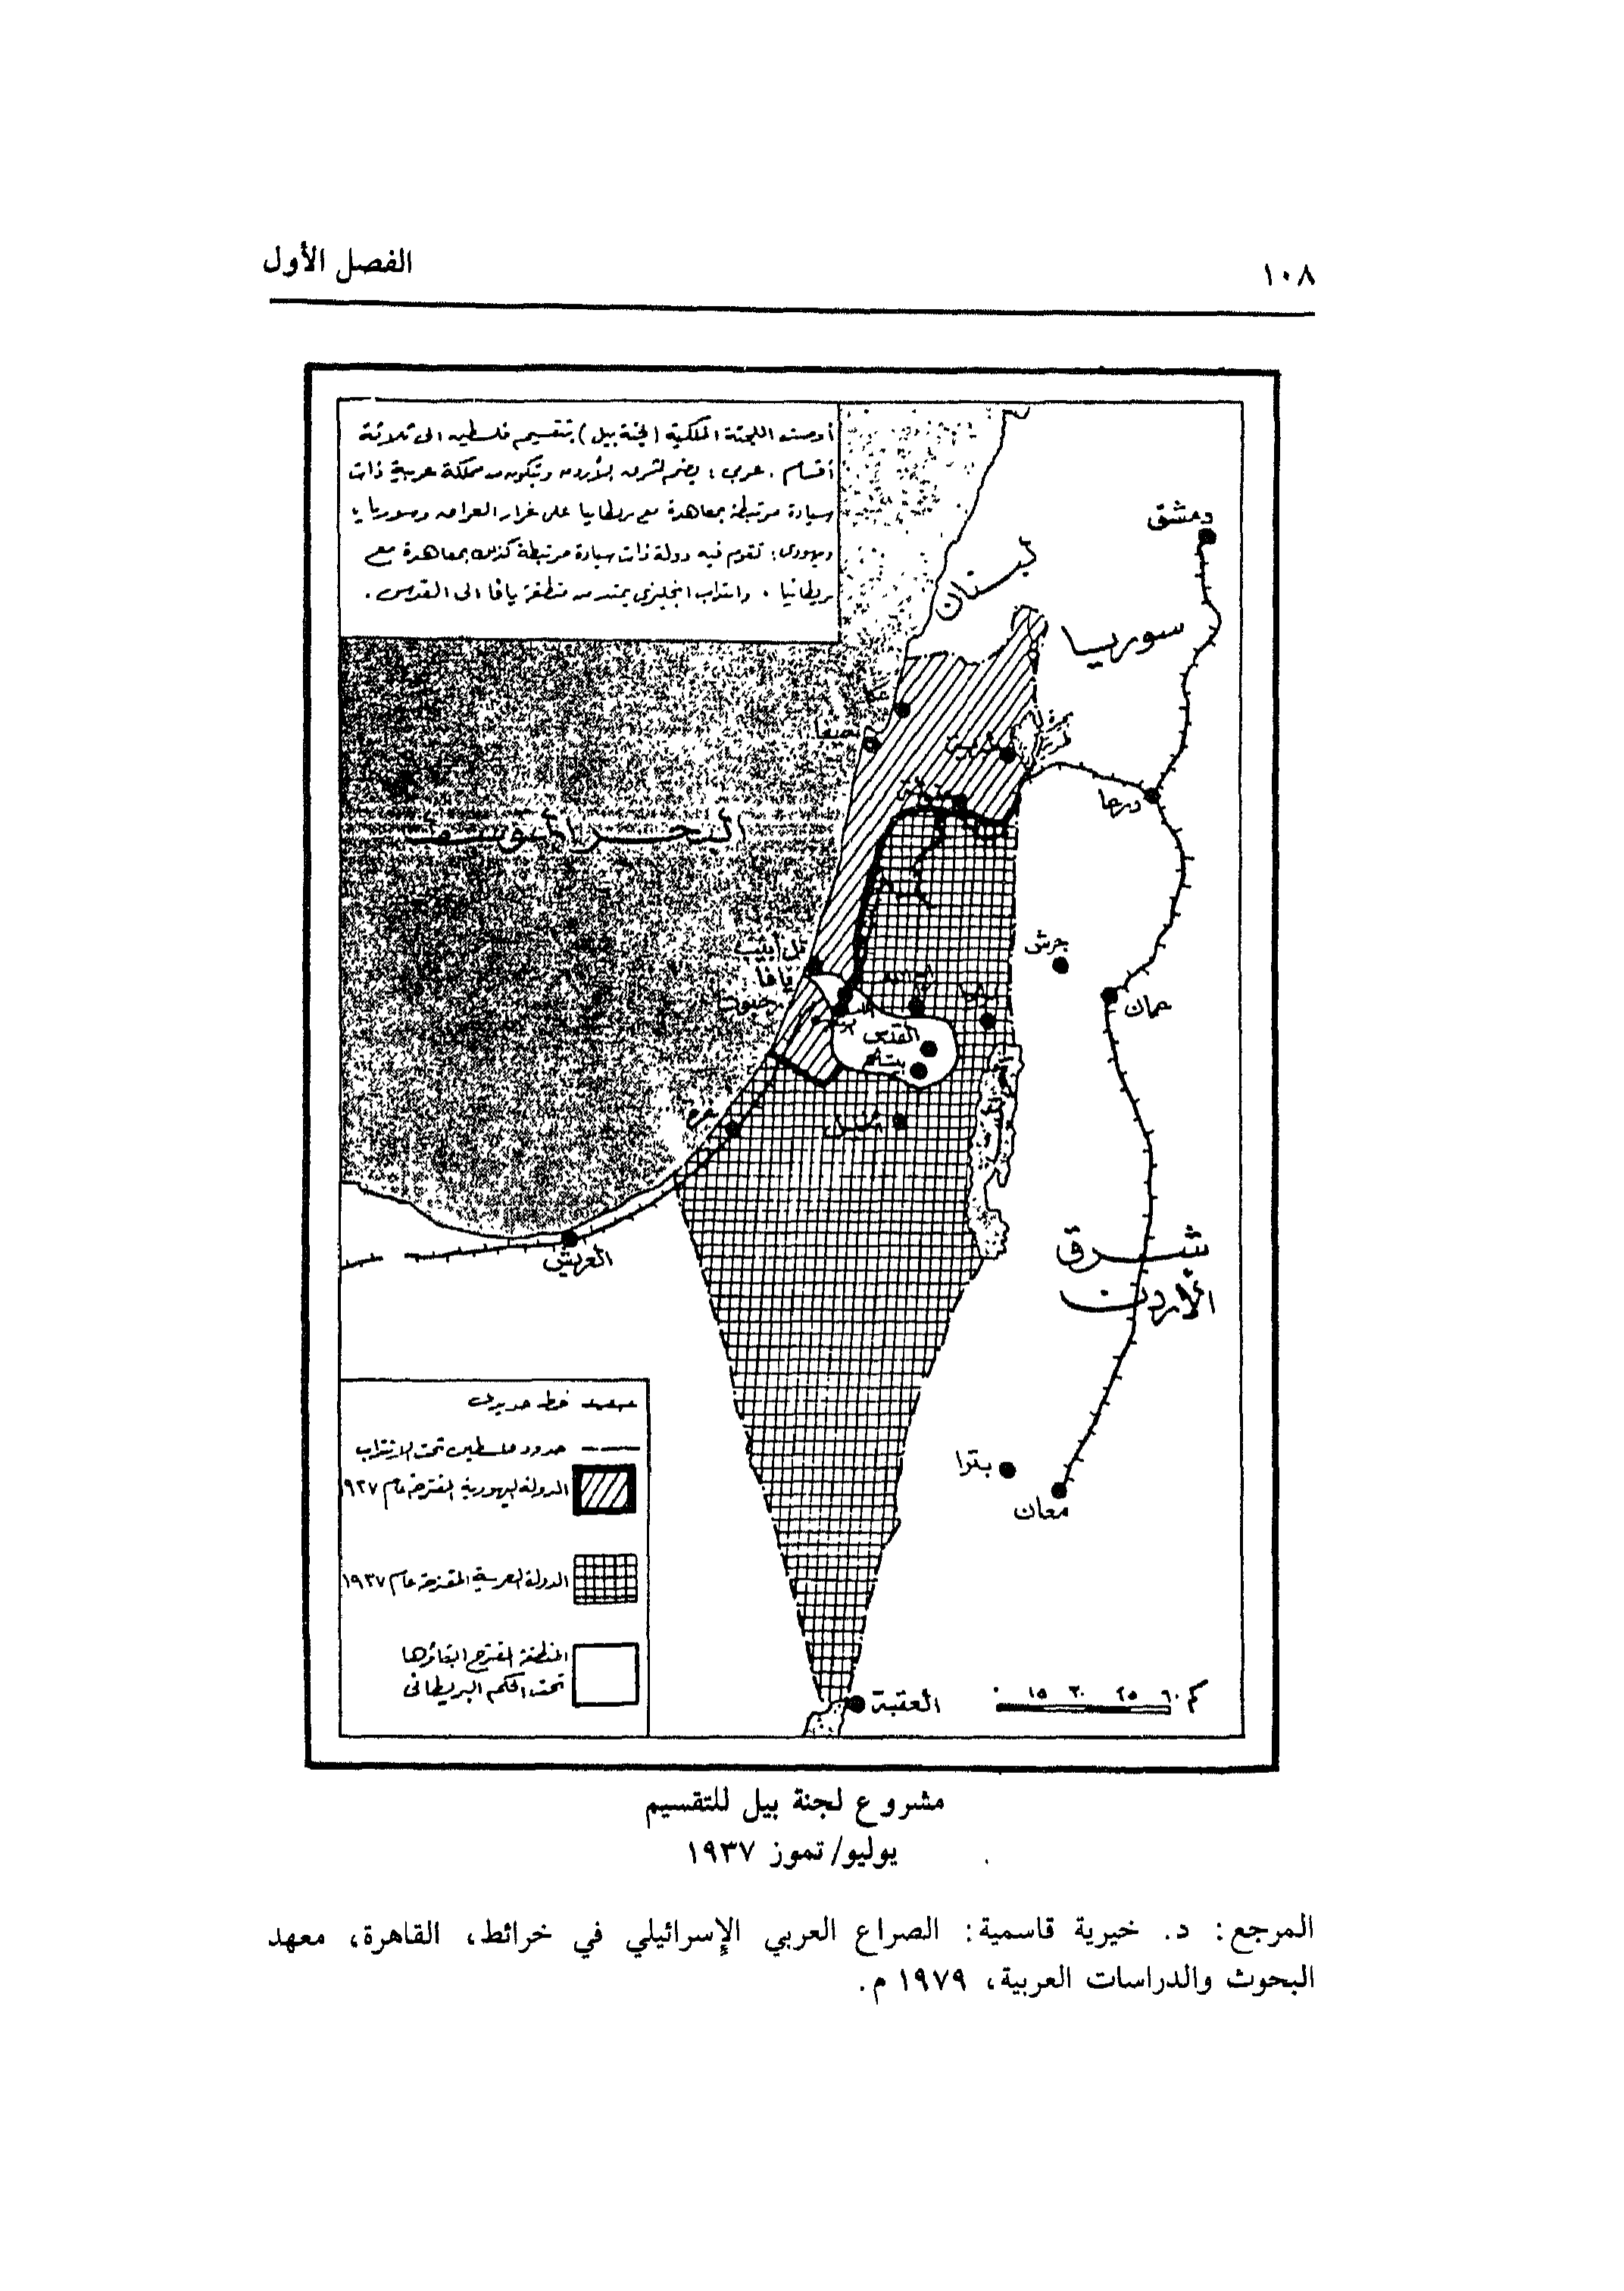 ١٠٨
الفصل الأول
أوصت اللجنة الملكية (لجنة بيل) بتقسيم فلسطين الى ثلاثة
أقسام . عربي : يضم لشرق الأردن وتتكون مملكة عربية ذات
سيادة مرتبطة بمعاهدة مع بريطانيا على غرار العراق وسوريا ؛
ويهودى : تقوم فيه دولة ذات سيادة مرتبطة كذلك بمعاهدة مع
بريطانيا . وانتداب انجليزي يمتد من منطقة يافا الى القدس .
دمشق
لبنان
سوريا
عكا
حيفا
طبرية
درعا
البحر المتوسط
تل أبيب
يافا
جرش
عمان
القدس
غزة
الخليل
العريش
شرق
الأردن
بترا
معان
العقبة
خط حديدى
حدود فلسطين تحت الانتداب
الدولة اليهودية المقترحة عام ١٩٣٧
الدولة العربية المقترحة عام ١٩٣٧
المنطقة المقترح ابقاؤها
تحت الحكم البريطانى
٠ ١٥ ٣٠ ٤٥ ٦٠ كم
مشروع لجنة بيل للتقسيم
يوليو/ تموز ١٩٣٧
المرجع: د. خيرية قاسمية: الصراع العربي الإسرائيلي في خرائط، القاهرة، معهد
البحوث والدراسات العربية، ١٩٧٩ م.